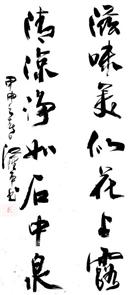 滋味美似花上露
清凉净如石中泉
甲申
书